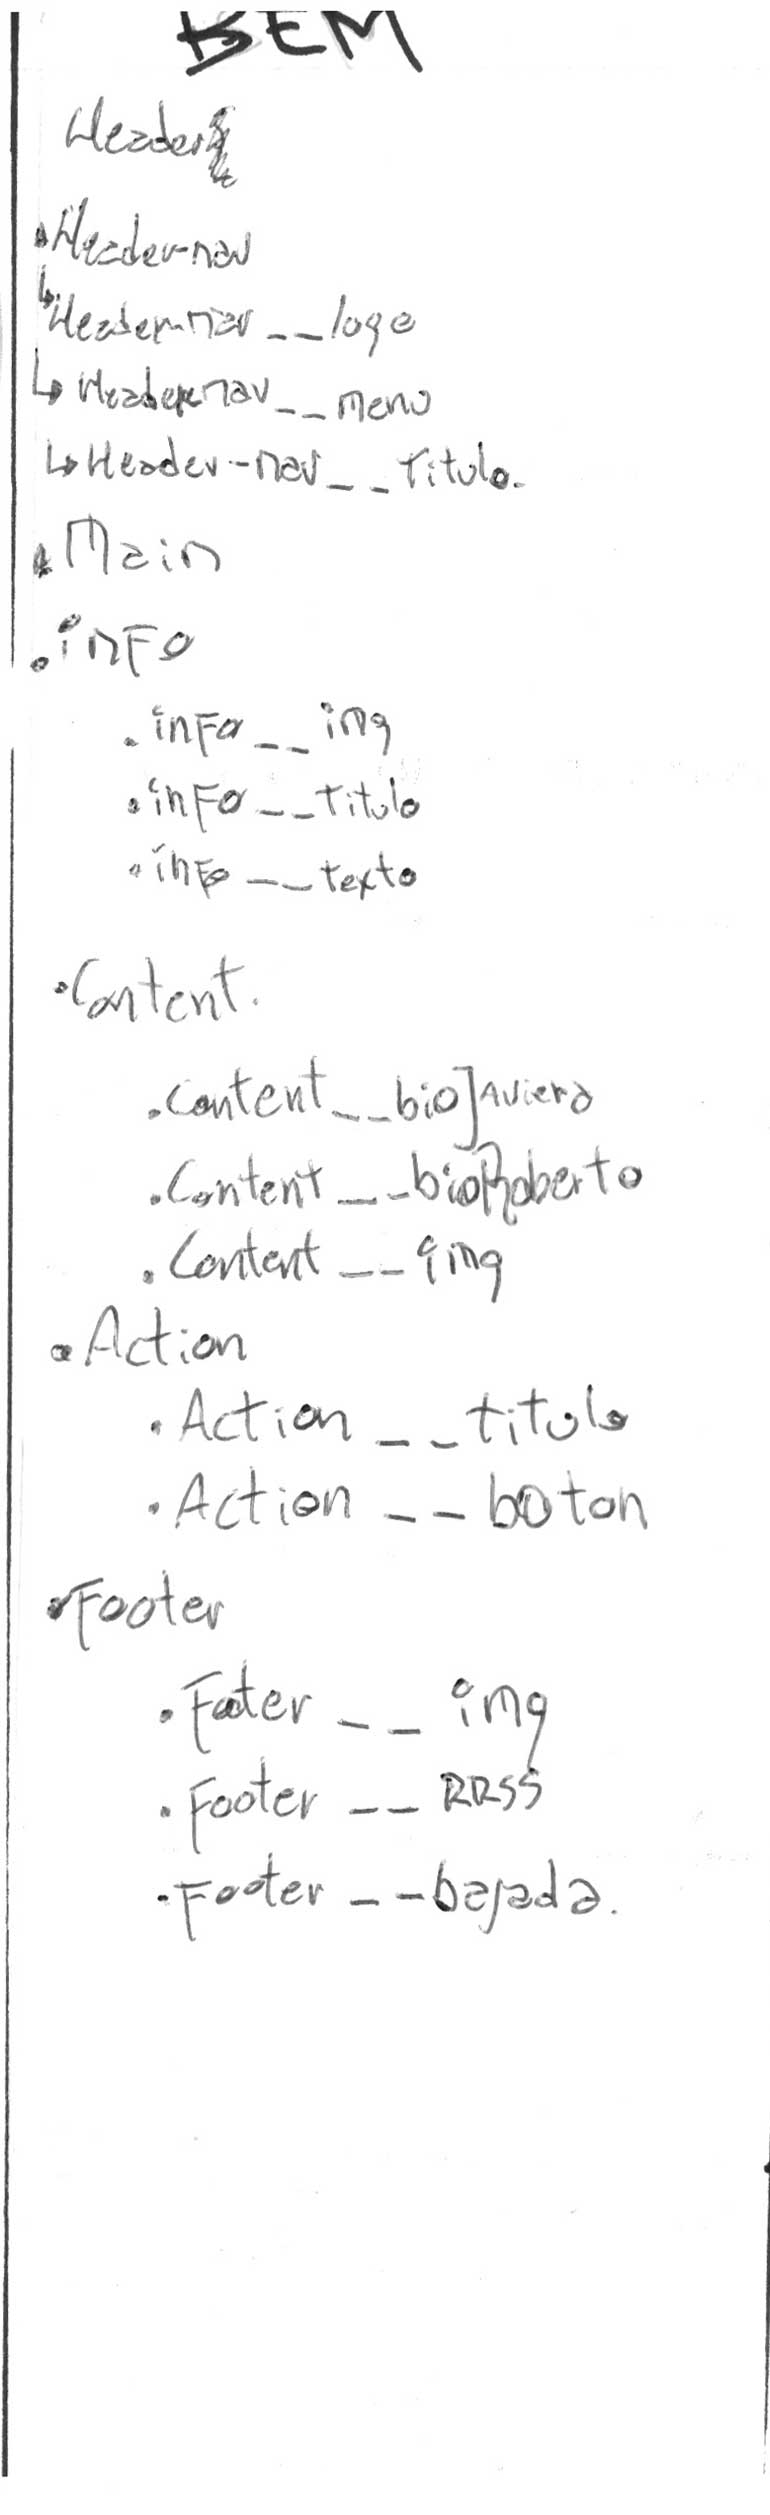 BEM
Header
.Header-nav
↳ Header-nav__logo
↳ Header-nav__menu
↳ Header-nav__titulo.
.Main
.info
.info__img
.info__titulo
.info__texto
.Content.
.Content__bioJaviera
.Content__bioRoberto
.Content__img
.Action
.Action__titulo
.Action__boton
.Footer
.Footer__img
.Footer__RRSS
.Footer__bajada.